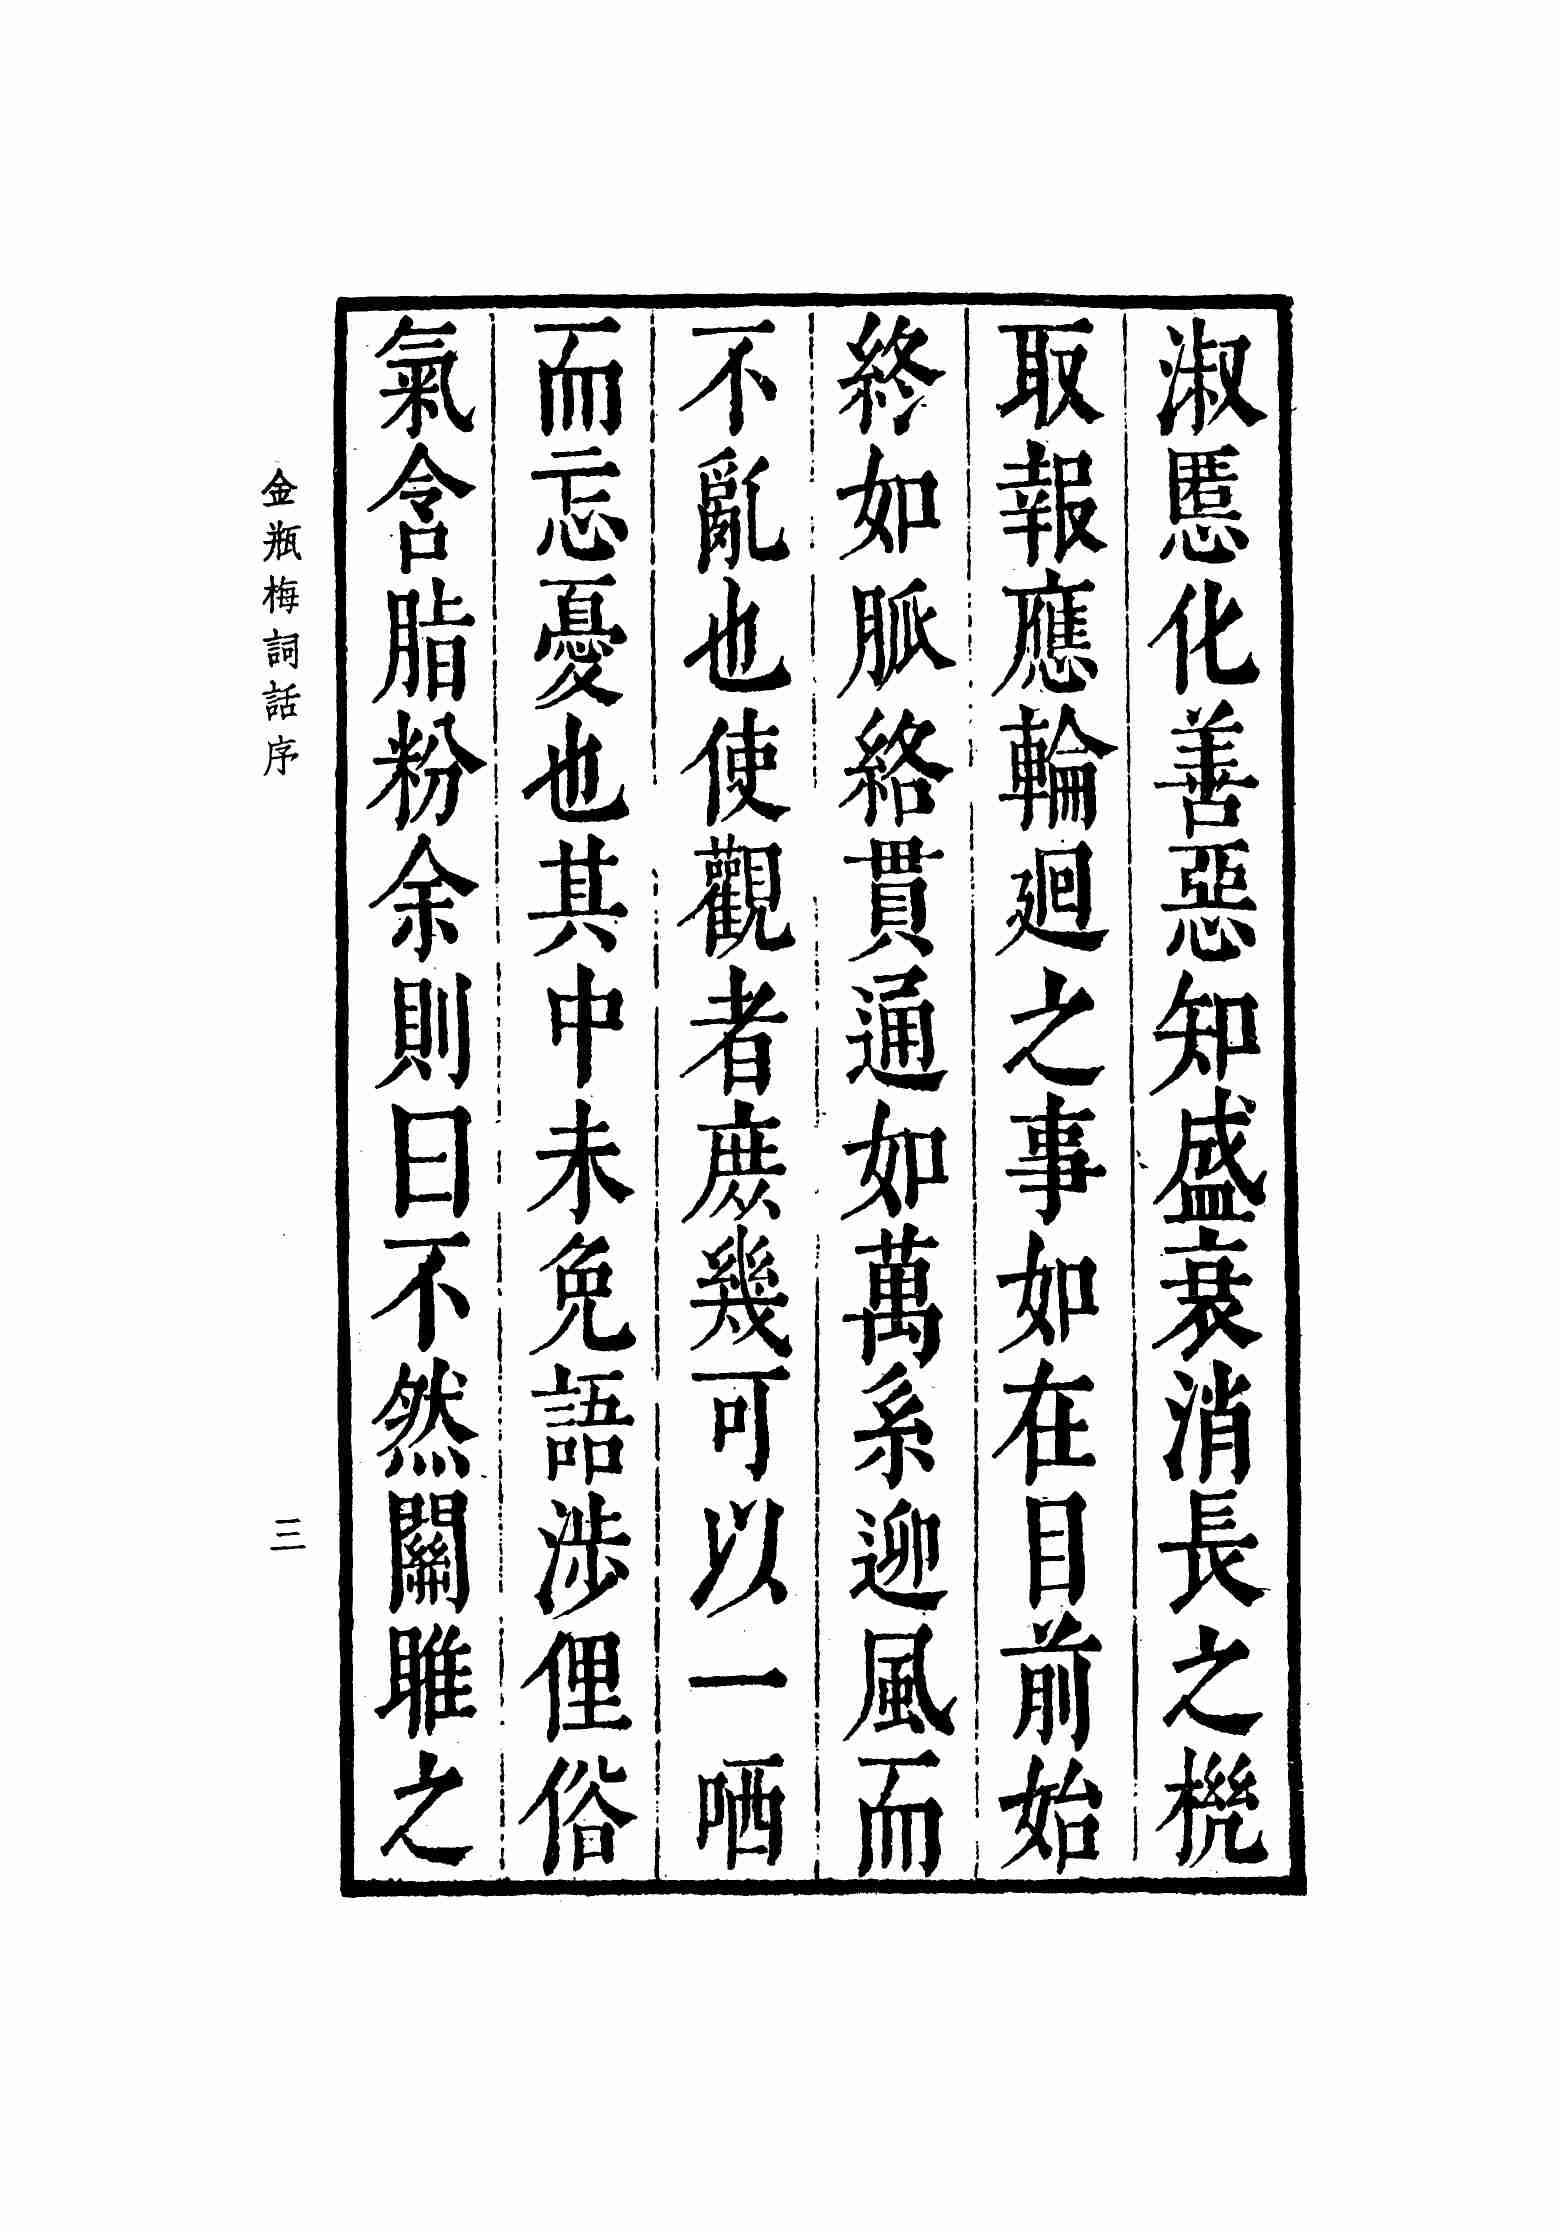 淑慝化善惡知盛衰消長之機
取報應輪廻之事如在目前始
終如脈絡貫通如萬系迎風而
不亂也使觀者庶幾可以一哂
而忘憂也其中未免語涉俚俗
氣含脂粉余則曰不然關雎之
金瓶梅詞話序
三